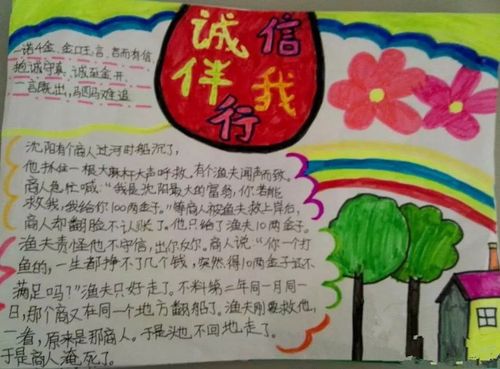 诚信
伴我
行
一诺千金、金口玉言、言而有信、
抱诚守真、诚至金开、
一言既出，驷马难追
沈阳有个商人过河时船沉了，
他抓住一根大麻杆大声呼救。有个渔夫闻声而致。
商人急忙喊：“我是沈阳最大的富翁，你若能
救我，我给你100两金子。”等商人被渔夫救上岸后，
商人却翻脸不认账了。他只给了渔夫10两金子。
渔夫责怪他不守信，出尔反尔。商人说：“你一个打
鱼的，一生都挣不了几个钱，突然得10两金子还不
满足吗？”渔夫只好走了。不料第二年同一月同一
日，那个商又在同一个地方翻船了。渔夫刚要救他，
一看，原来是那商人。于是头也不回地走了。
于是商人淹死了。